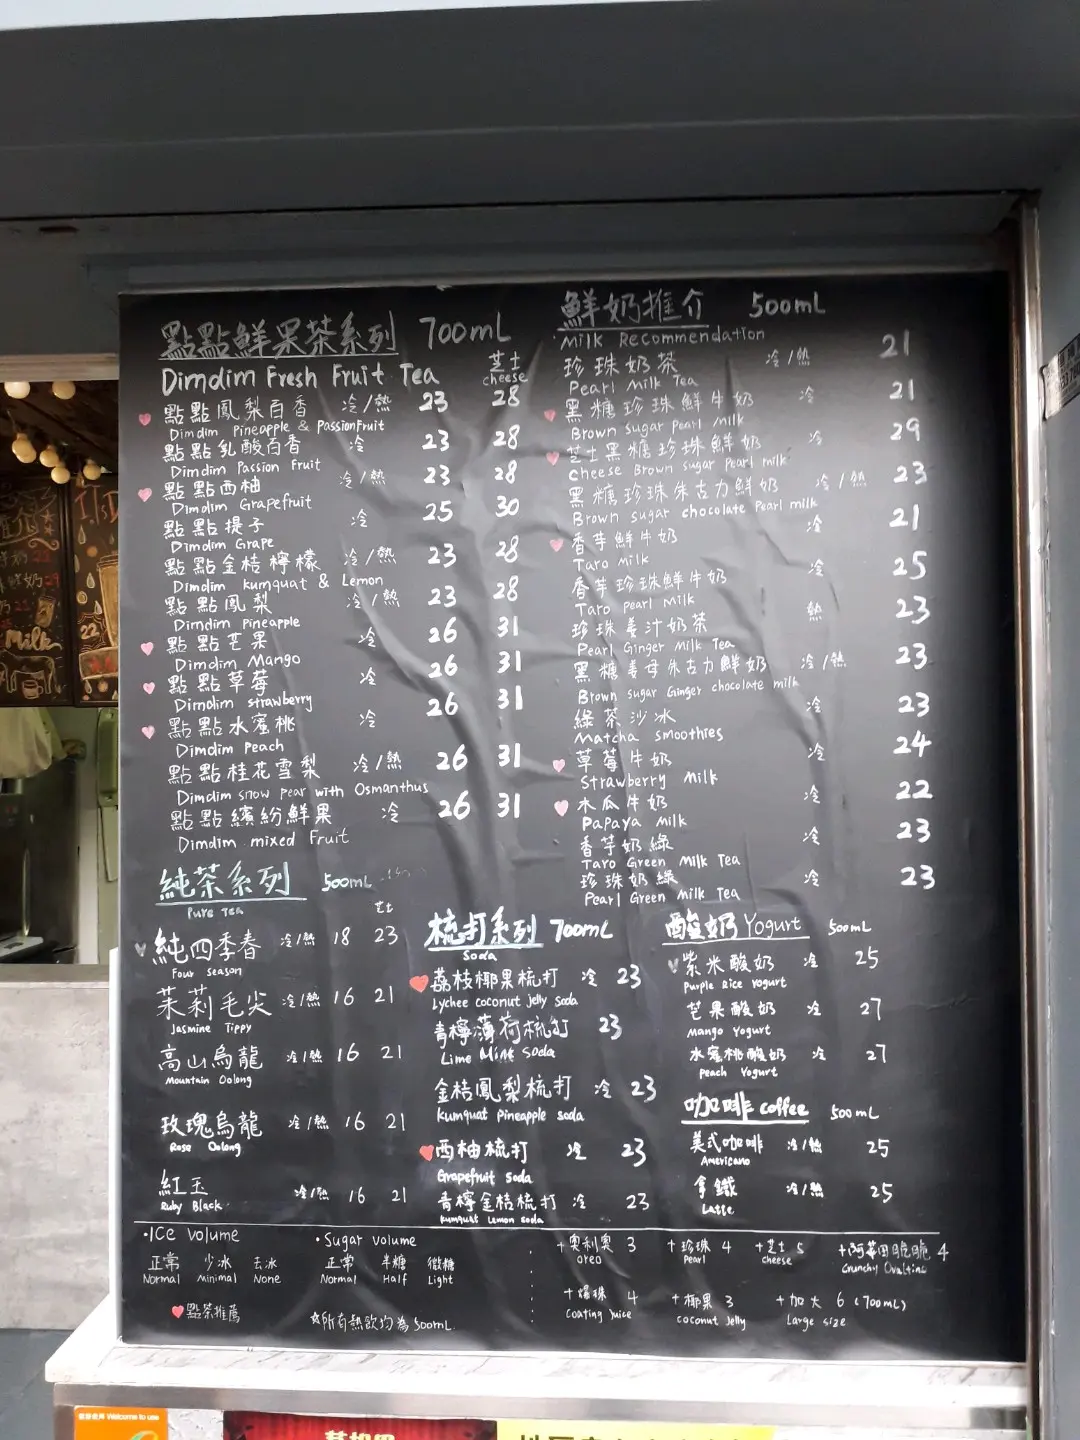 點點鮮果茶系列 700mL
Dimdim Fresh Fruit Tea 芝士 cheese
點點鳳梨百香 冷/熱 23 28
Dimdim Pineapple & Passionfruit
點點乳酸百香 冷 23 28
Dimdim Passion Fruit
點點西柚 冷/熱 23 28
Dimdim Grapefruit
點點提子 冷 25 30
Dimdim Grape
點點金桔檸檬 冷/熱 23 28
Dimdim kumquat & Lemon
點點鳳梨 冷/熱 23 28
Dimdim Pineapple
點點芒果 冷 26 31
Dimdim Mango
點點草莓 冷 26 31
Dimdim strawberry
點點水蜜桃 冷 26 31
Dimdim Peach
點點桂花雪梨 冷/熱 26 31
Dimdim snow pear with Osmanthus
點點繽紛鮮果 冷 26 31
Dimdim mixed Fruit
鮮奶推介 500mL
Milk Recommendation
珍珠奶茶 冷/熱 21
Pearl Milk Tea
黑糖珍珠鮮牛奶 冷 21
Brown sugar pearl Milk
芝士黑糖珍珠鮮奶 冷 29
cheese Brown sugar Pearl milk
黑糖珍珠朱古力鮮奶 冷/熱 23
Brown sugar chocolate Pearl milk
香芋鮮牛奶 冷 21
Taro Milk
香芋珍珠鮮牛奶 冷 25
Taro pearl Milk
珍珠姜汁奶茶 熱 23
Pearl Ginger Milk Tea
黑糖姜母朱古力鮮奶 冷/熱 23
Brown sugar Ginger chocolate milk
綠茶沙冰 冷 23
Matcha smoothies
草莓牛奶 冷 24
Strawberry Milk
木瓜牛奶 冷 22
Papaya Milk
香芋奶綠 冷 23
Taro Green Milk Tea
珍珠奶綠 冷 23
Pearl Green Milk Tea
純茶系列 500mL
Pure Tea 芝士
純四季春 冷/熱 18 23
Four season
茉莉毛尖 冷/熱 16 21
Jasmine Tippy
高山烏龍 冷/熱 16 21
Mountain Oolong
玫瑰烏龍 冷/熱 16 21
Rose Oolong
紅玉 冷/熱 16 21
Ruby Black
梳打系列 700mL
Soda
荔枝椰果梳打 冷 23
Lychee coconut jelly soda
青檸薄荷梳打 23
Lime Mint Soda
金桔鳳梨梳打 冷 23
Kumquat pineapple soda
西柚梳打 冷 23
Grapefruit soda
青檸金桔梳打 冷 23
Kumquat Lemon soda
酸奶 Yogurt 500mL
紫米酸奶 冷 25
Purple Rice Yogurt
芒果酸奶 冷 27
Mango Yogurt
水蜜桃酸奶 冷 27
Peach Yogurt
咖啡 coffee 500mL
美式咖啡 冷/熱 25
Americano
拿鐵 冷/熱 25
Latte
·ICe volume
正常 少冰 去冰
Normal Minimal None
·Sugar volume
正常 半糖 微糖
Normal Half Light
點茶推薦
☆所有熱飲均為500mL
+奧利奧 3 +珍珠 4 +芝士 5 +阿華田脆脆 4
Oreo Pearl cheese Crunchy Ovaltine
+爆珠 4 +椰果 3 +加大 6 (700mL)
Coating juice coconut Jelly Large size
Milk
22
Welcome to use